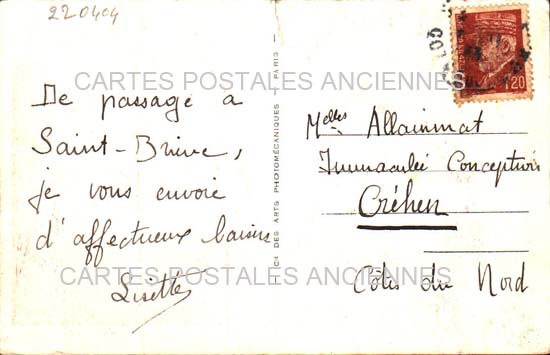 220404
CARTES POSTALES ANCIENNES
De passage à
Saint-Brieuc,
je vous envoie
d'affectueux baisers
Lisette
CARTES POSTALES ANCIENNES
DES ARTS PHOTOMÉCANIQUES - PARIS
1,20
Melles Allainmat
Immaculée Conception
Créhen
Côtes du Nord